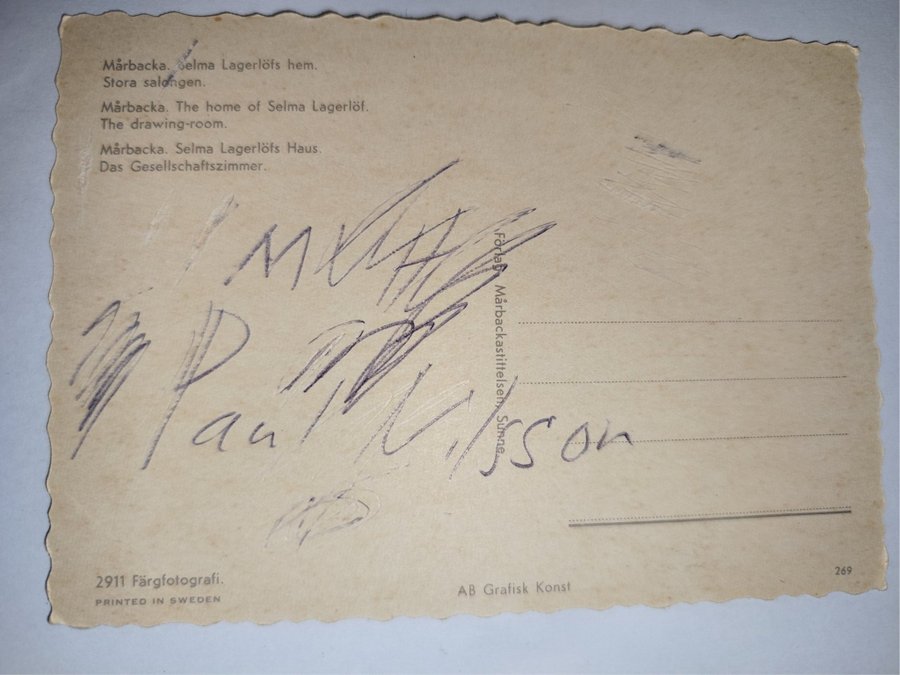 Mårbacka. Selma Lagerlöfs hem.
Stora salongen.
Mårbacka. The home of Selma Lagerlöf.
The drawing-room.
Mårbacka. Selma Lagerlöfs Haus.
Das Gesellschaftszimmer.
Förlag Mårbackastiftelsen, Sunne.
Paul Nilsson
2911 Färgfotografi.
PRINTED IN SWEDEN
AB Grafisk Konst
269